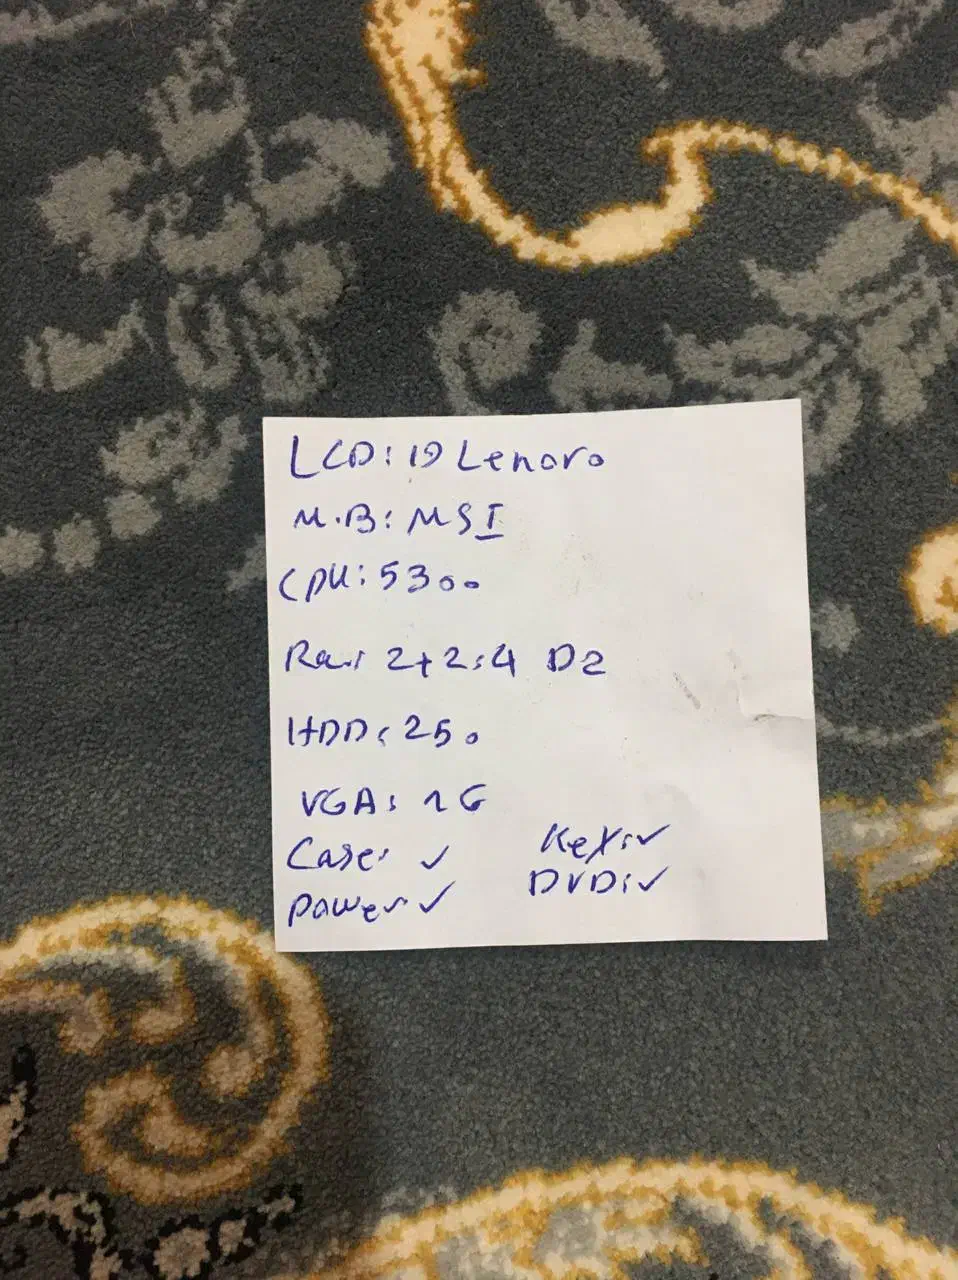 LCD: 19 Lenovo
M.B: MSI
CPU: 5300
Ram: 2+2:4 D2
HDD: 250
VGA: 1G
Case: ✓ Key: ✓
Power ✓ DVD: ✓